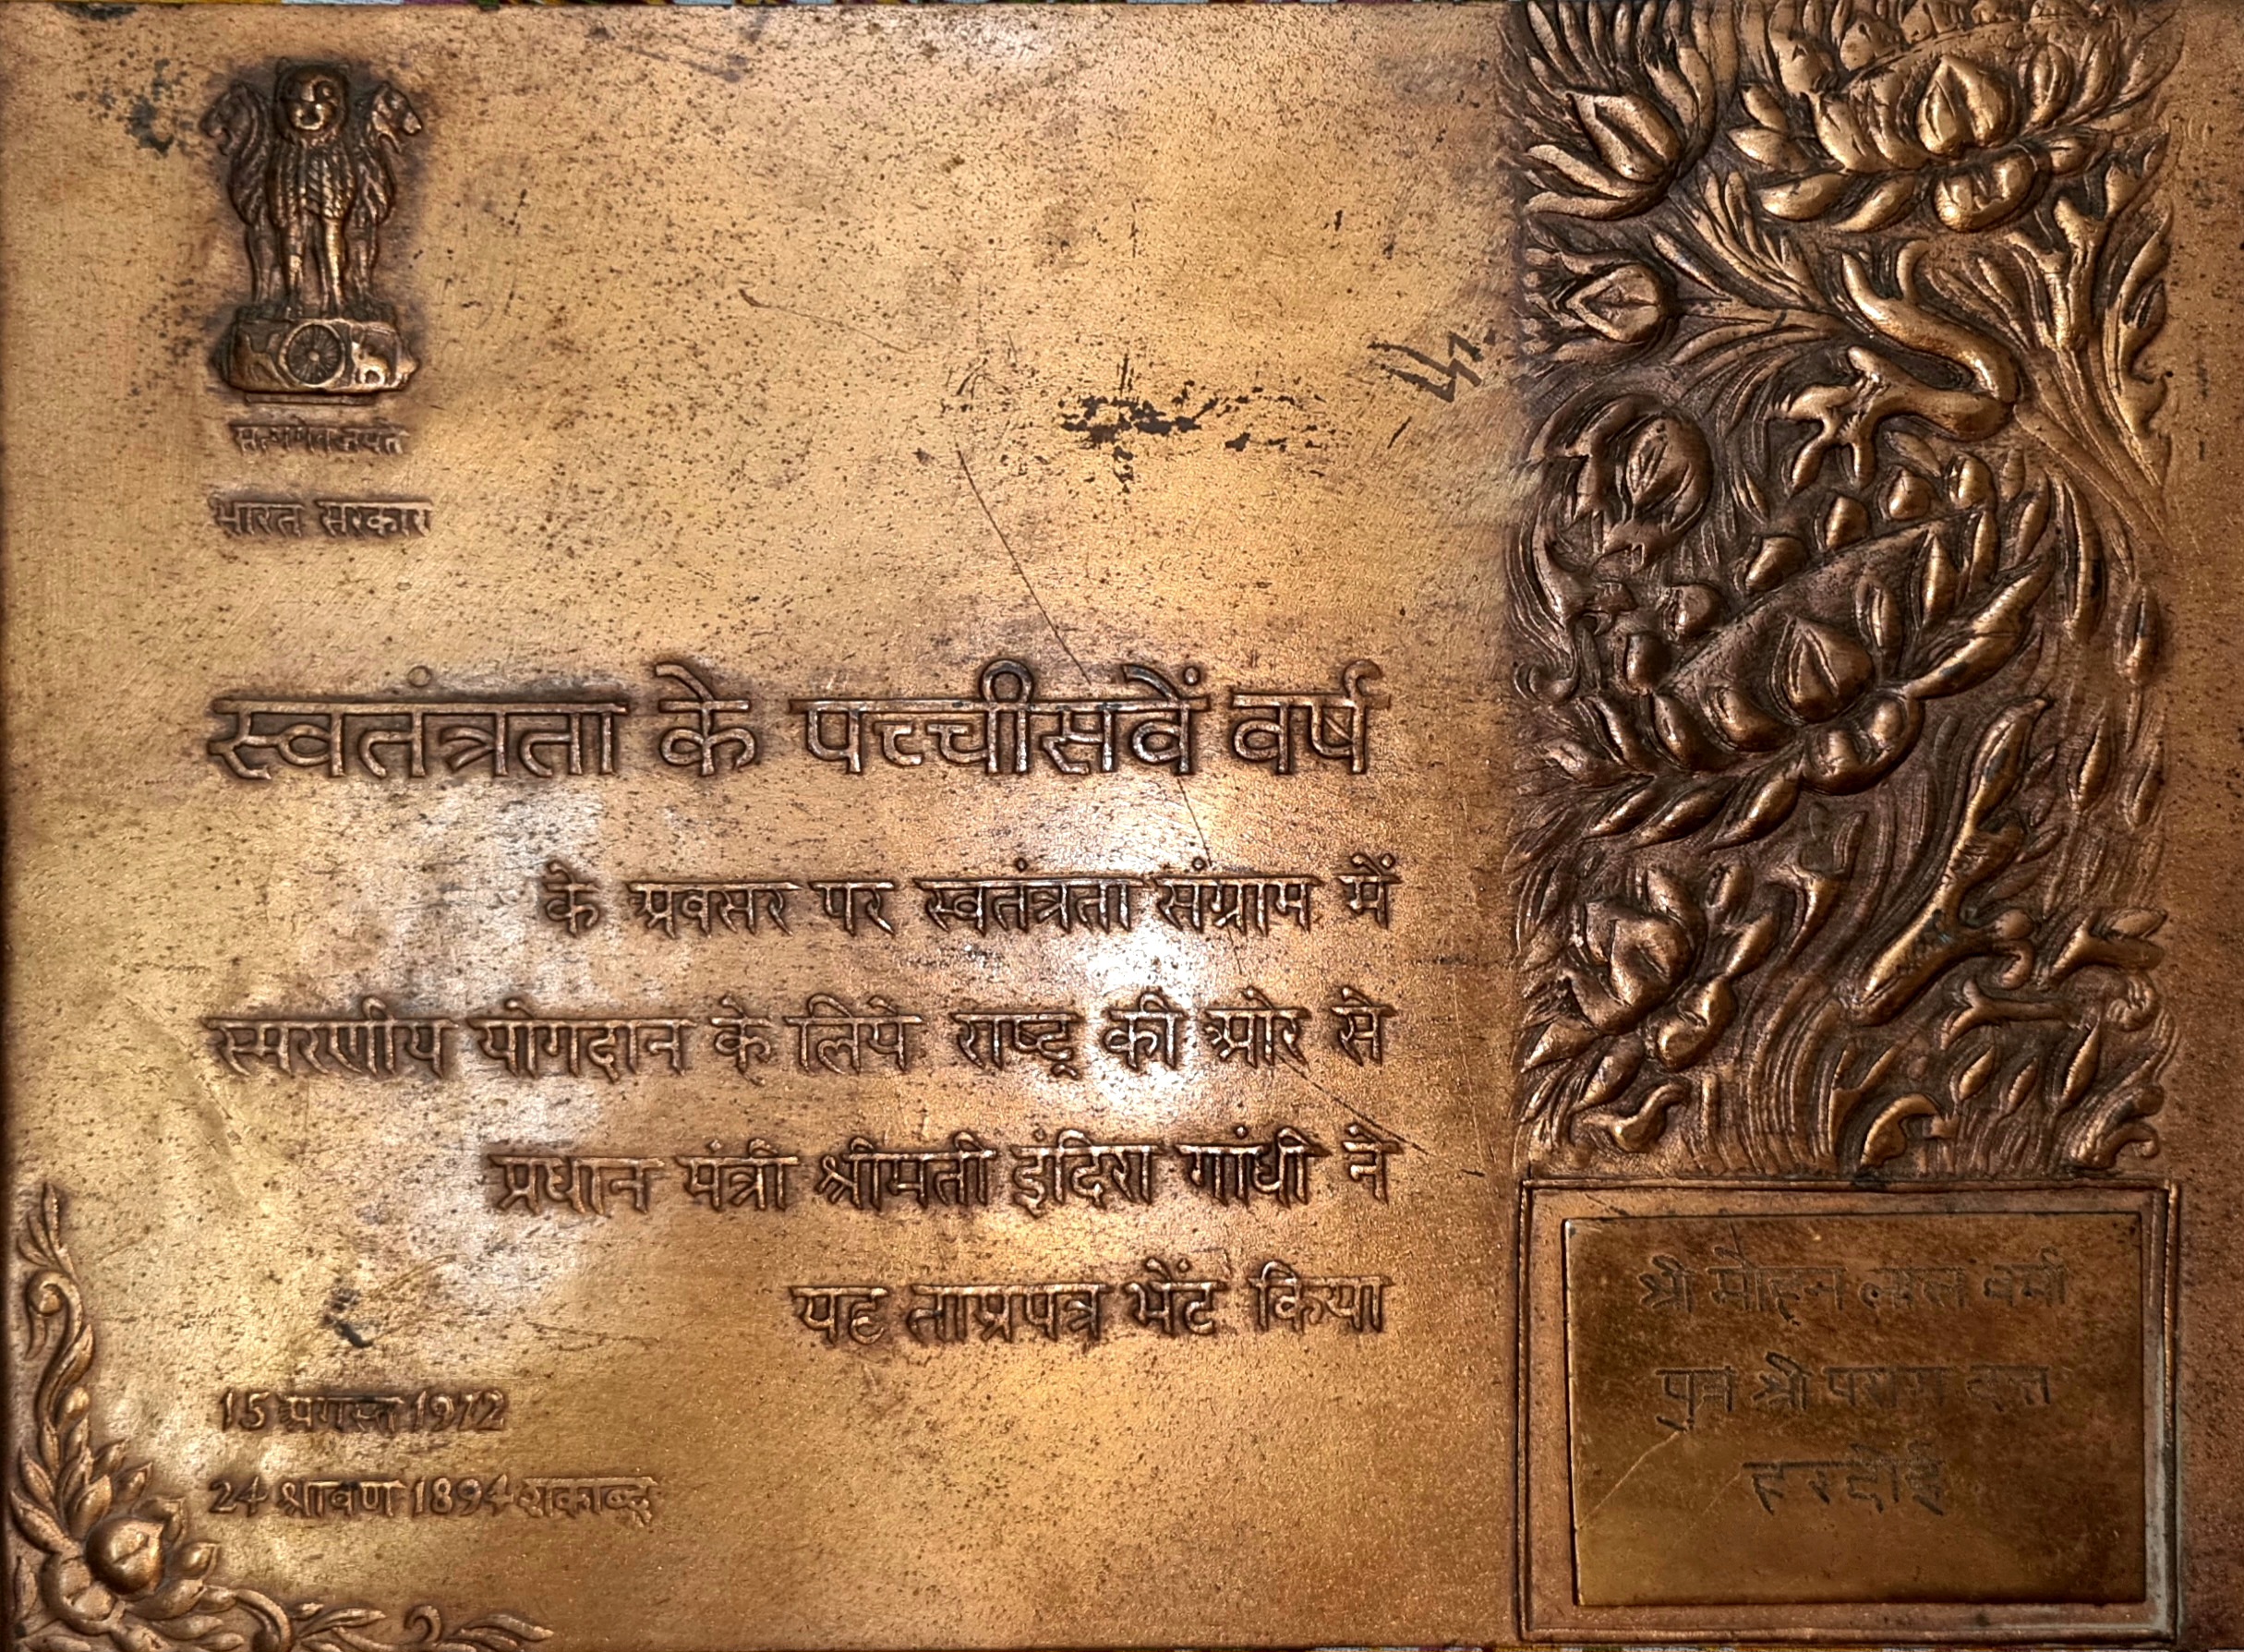 सत्यमेव जयते
भारत सरकार
स्वतंत्रता के पच्चीसवें वर्ष
के अवसर पर स्वतंत्रता संग्राम में
स्मरणीय योगदान के लिये राष्ट्र की ओर से
प्रधान मंत्री श्रीमती इंदिरा गांधी ने
यह ताम्रपत्र भेंट किया
15 अगस्त 1972
24 श्रावण 1894 शकाब्द
श्री मोहन लाल वर्मा
पुत्र श्री
हरदोई